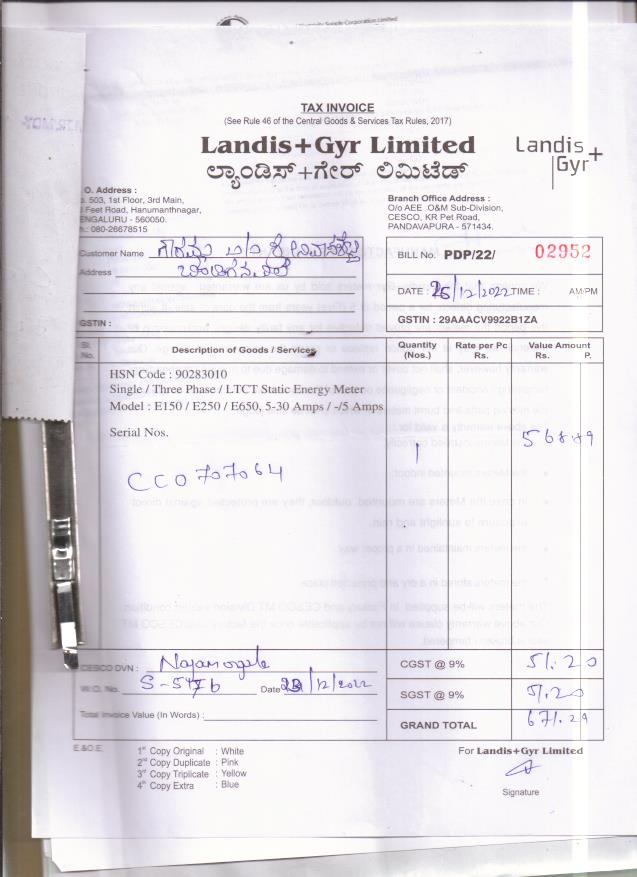 TAX INVOICE
(See Rule 46 of the Central Goods & Services Tax Rules, 2017)
Landis+Gyr Limited
ಲ್ಯಾಂಡಿಸ್+ಗೇರ್ ಲಿಮಿಟೆಡ್
Landis+
Gyr
O. Address :
503, 1st Floor, 3rd Main,
Feet Road, Hanumanthnagar,
ENGALURU - 560050.
: 080-26678515
Branch Office Address :
O/o AEE .O&M Sub-Division,
CESCO, KR Pet Road,
PANDAVAPURA - 571434.
Customer Name
Address
GSTIN :
BILL No. PDP/22/ 02952
DATE : 26/12/2022 TIME : AM/PM
GSTIN : 29AAACV9922B1ZA
Sl. No. Description of Goods / Services Quantity (Nos.) Rate per Pc Rs. Value Amount Rs. P.
HSN Code : 90283010
Single / Three Phase / LTCT Static Energy Meter
Model : E150 / E250 / E650, 5-30 Amps / -/5 Amps
Serial Nos. 1 568.89
CC0707064
CESCO DVN :
W.O. No. S-5476 Date 23/12/2022
Total Invoice Value (In Words) :
CGST @ 9% 51.20
SGST @ 9% 51.20
GRAND TOTAL 671.29
E.&O.E.
1st Copy Original : White
2nd Copy Duplicate : Pink
3rd Copy Triplicate : Yellow
4th Copy Extra : Blue
For Landis+Gyr Limited
Signature